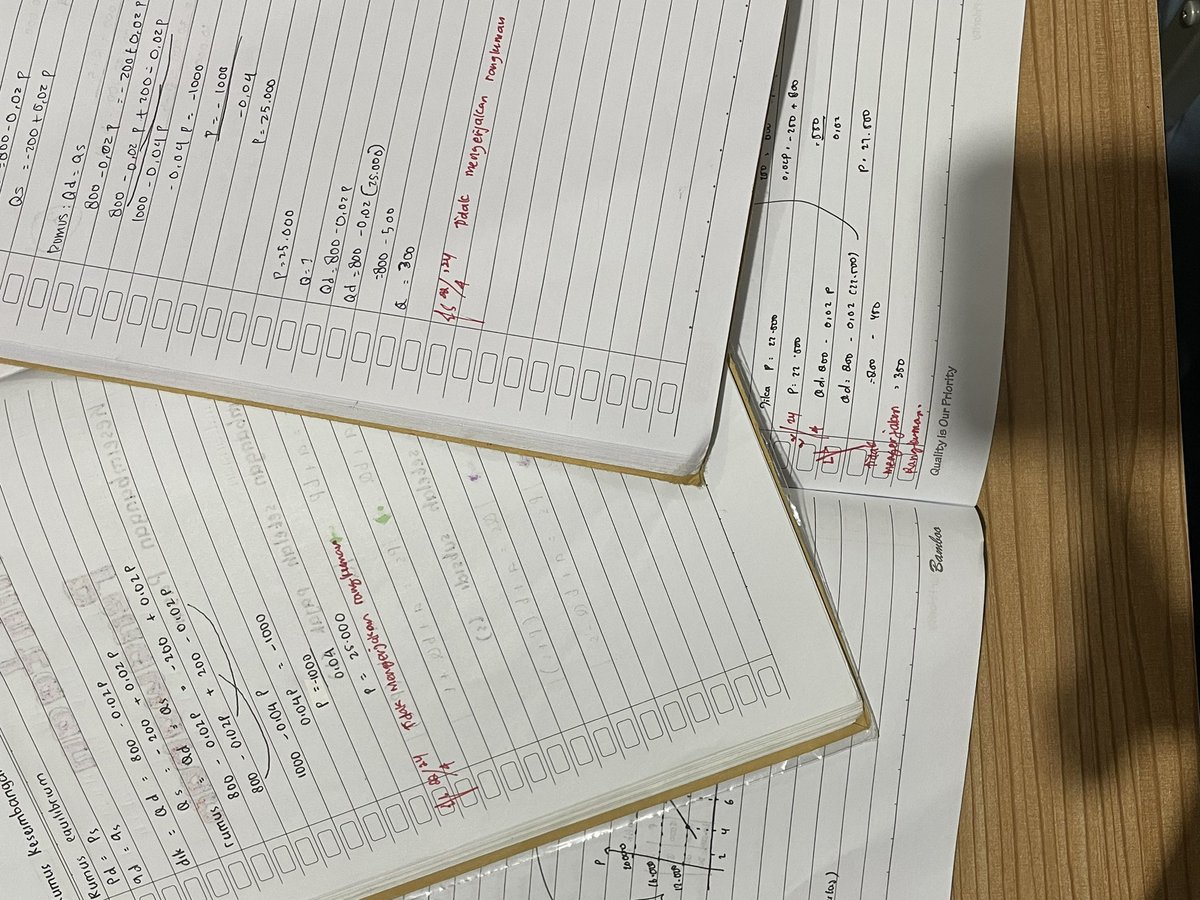 Qs = -200 + 0,02 P
Rumus : Qd = Qs
800 - 0,02 P = -200 + 0,02 P
800 - 0,02 P + 200 - 0,02 P
1000 - 0,04 P
-0,04 P = -1000
P = -1000
-0,04
P = 25.000
P = 25.000
Q = ?
Qd = 800 - 0,02 P
Qd = 800 - 0,02 (25.000)
= 800 - 500
Q = 300
Tidak mengerjakan rangkuman
Rumus equilibrium
Pd = Ps
qd = qs
dik = Qd = 800 - 0,02 P
Qs = -200 + 0,02 P
rumus = Qd = Qs = -200 + 0,02 P
800 - 0,02 P
800 - 0,02 P + 200 - 0,02 P
1000 - 0,04 P
0,04 P = -1000
P = -1000
0,04
P = 25.000
Tidak mengerjakan rangkuman
0,02P = -250 + 800
550
0,02
P = 27.500
Jika P = 22.500
P = 22.500
Qd = 800 - 0,02 P
Qd = 800 - 0,02 (22.500)
= 800 - 450
= 350
Tidak
mengerjakan
rangkuman.
Quality Is Our Priority
Bamboo
P
20.000
16.000
12.000
2 4 6